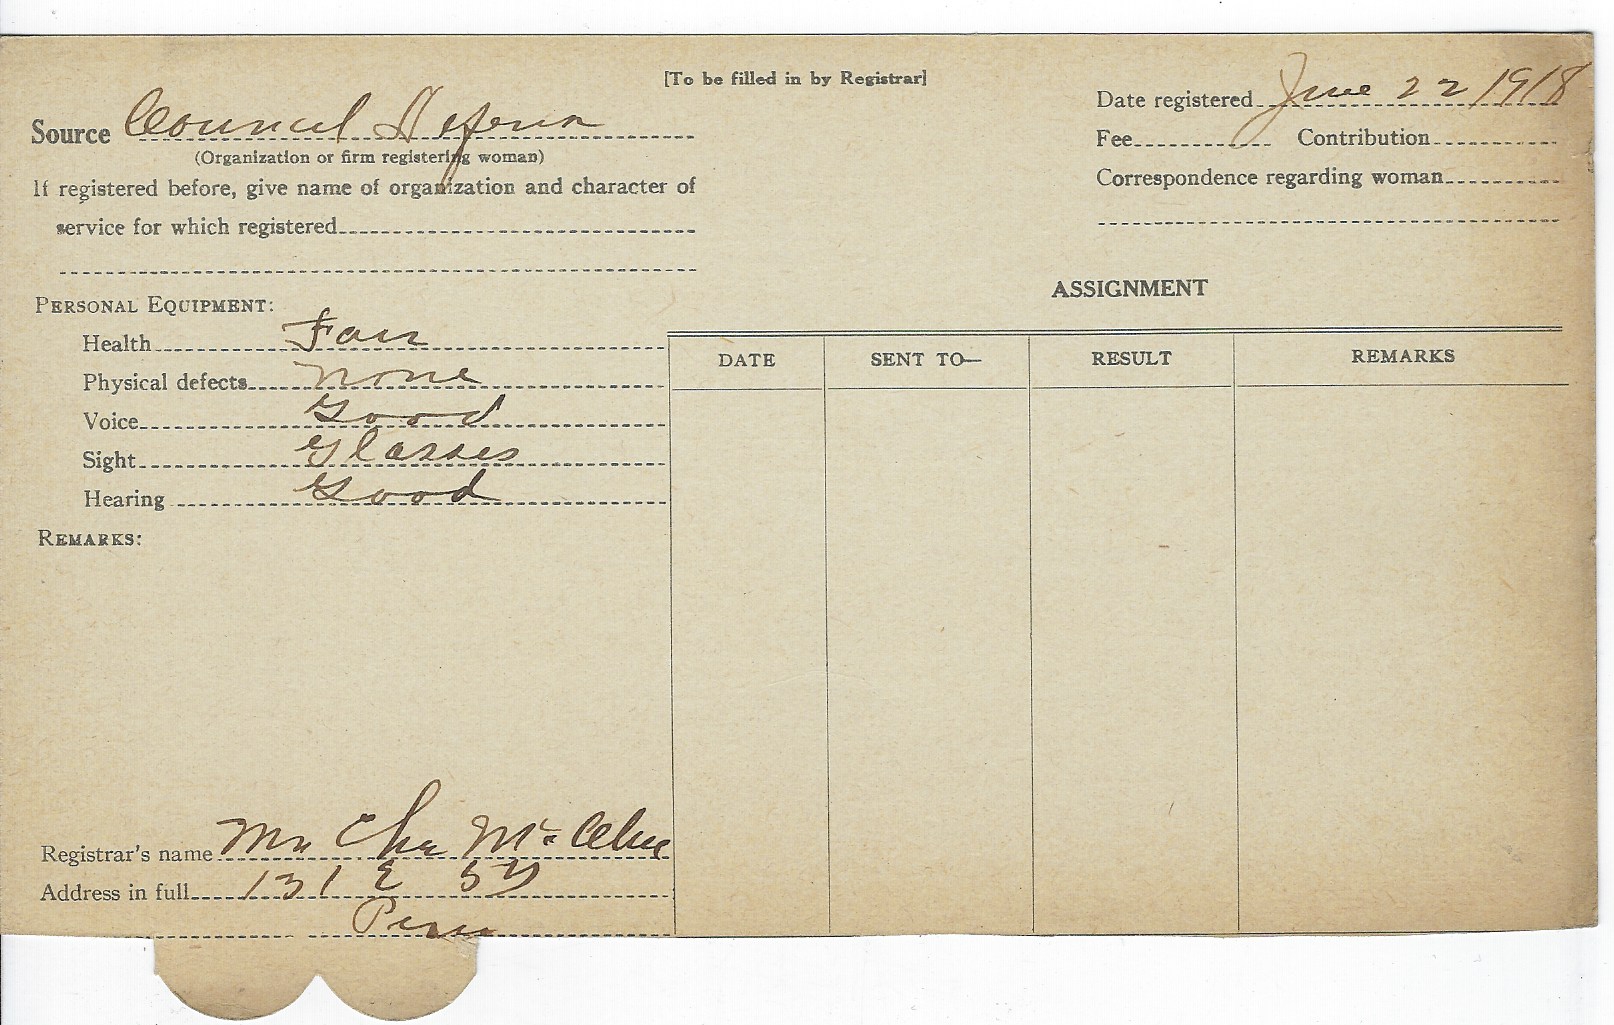 [To be filled in by Registrar]
Source Council Defense
(Organization or firm registering woman)
If registered before, give name of organization and character of
service for which registered
Date registered June 22 1918
Fee Contribution
Correspondence regarding woman
PERSONAL EQUIPMENT:
Health Fair
Physical defects none
Voice Good
Sight Glasses
Hearing Good
REMARKS:
ASSIGNMENT
DATE SENT TO— RESULT REMARKS
Registrar's name Mrs Chas
Address in full 131 E 5th
Peru